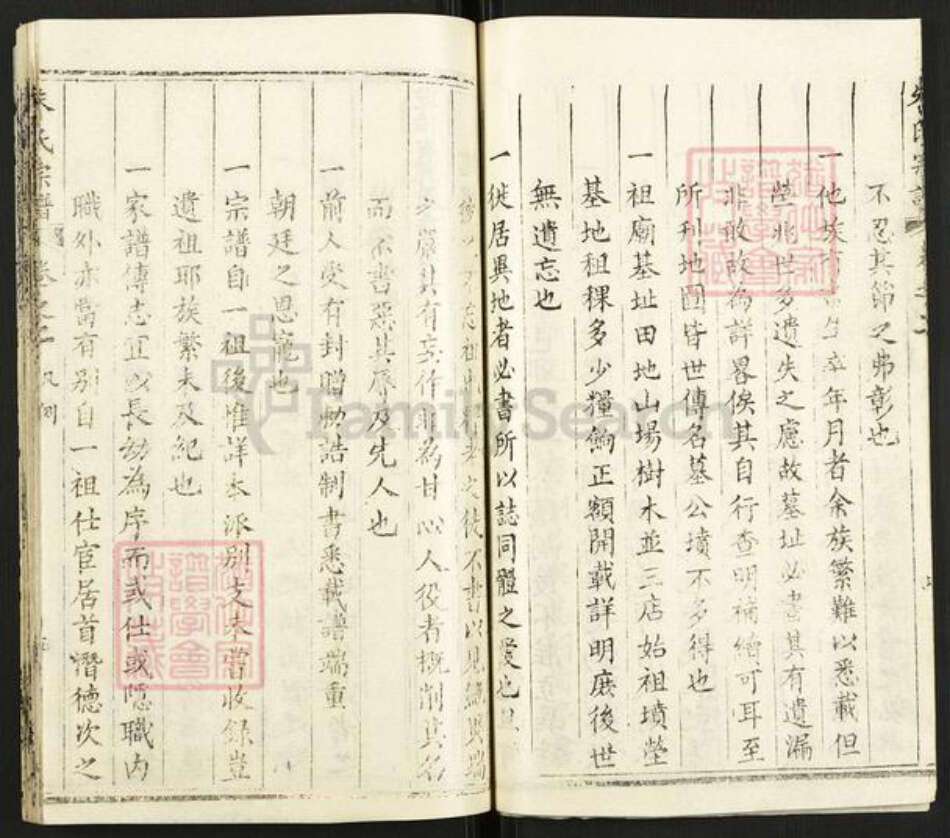 不忍其節之弗彰也
一他族 生卒年月者余族繁難以悉載但
塋兆世多遺失之慮故墓址必書其有遺漏
非敢故為詳畧俟其自行查明補續可耳至
所刊地圖皆世傳名墓公墳不多得也
一祖廟基址田地山場樹木並三店始祖墳塋
基地租稞多少糧餉正額開載詳明庶後世
無遺忘也
一徙居異地者必書所以誌同體之愛也
之徒不書以見
之嚴其有 為甘以人役者概削其名
而不書惡其辱及先人也
一前人受有封贈勅誥制書悉載譜端重
朝廷之恩寵也
一宗譜自一祖後惟詳本派別支未嘗收錄豈
遺祖耶族繁未及紀也
一家譜傳志宜以長幼為序而或仕或隱職內
職外亦當有別自一祖仕宦居首潛德次之
氏宗譜 卷之 凡例
FamilySearch